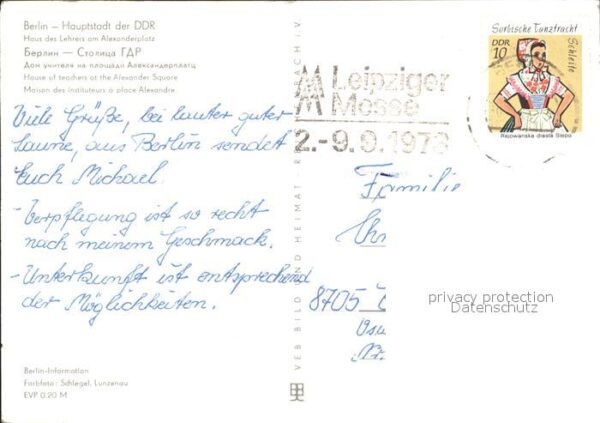 Berlin — Hauptstadt der DDR
Haus des Lehrers am Alexanderplatz
Берлин — Столица ГДР
Дом учителя на площади Александерплатц
House of teachers at the Alexander Square
Maison des instituteurs a place Alexandre
Viele Grüße, bei lauter guter
Laune, aus Berlin sendet
Euch Michael.
- Verpflegung ist so recht
nach meinem Geschmack.
- Unterkunft ist entsprechend
der Möglichkeiten.
Berlin-Information
Farbfoto: Schlegel, Lunzenau
EVP 0,20 M
VEB BILD UND HEIMAT REICHENBACH I.V.
Leipziger
Messe
2.-9.9.1973
Sorbische Tanztracht
Schleife
DDR
10
Rejowanska drasta Slepo
Familie
Chr
8705
privacy protection
Datenschutz